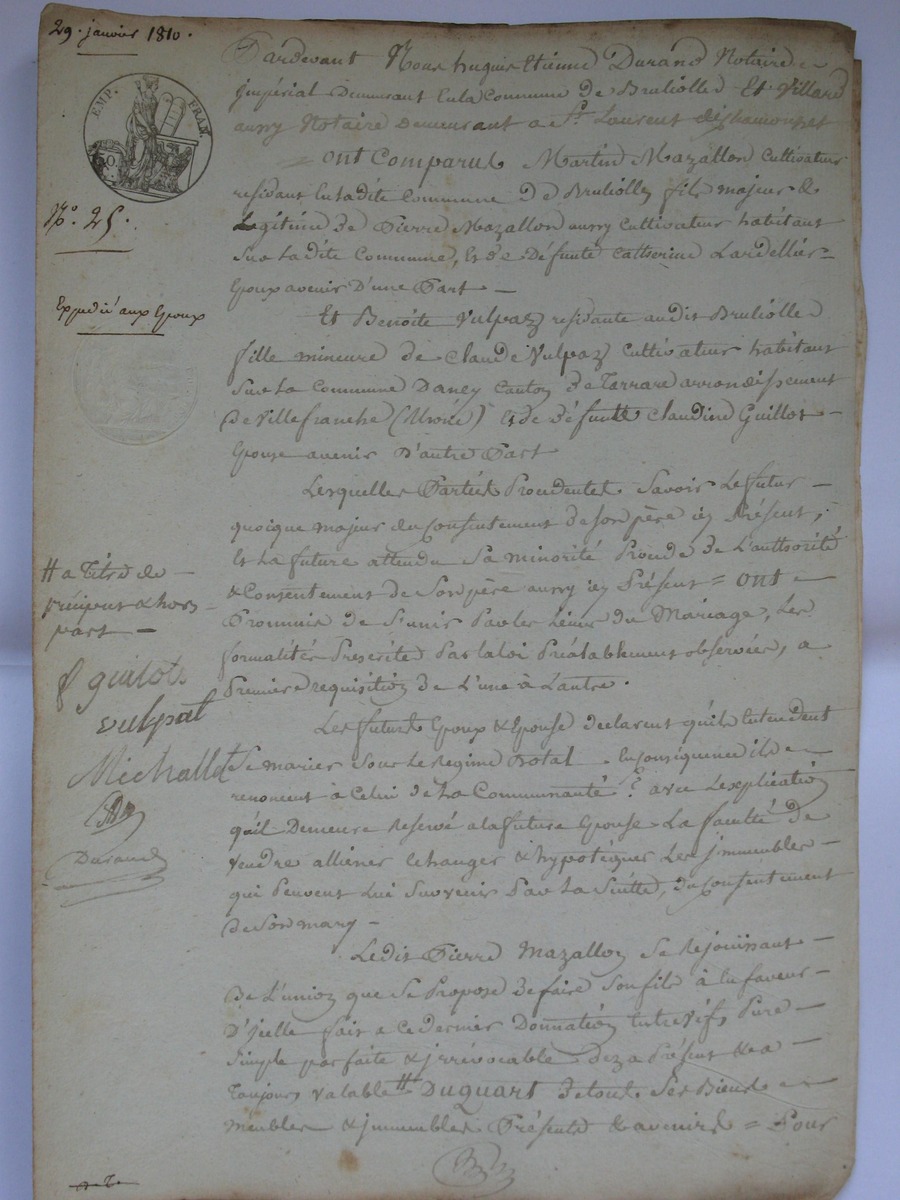 29. janvier 1810.
EMP. FRAN.
50.
N.° 25.
Expedié aux Epoux
Pardevant Nous hugues Etienne Durand Notaire
jmpérial Demeurant en la Commune de Brulliolle Et Villard
aussy Notaire Demeurant a St. Laurent deschamousset
= ont Comparus Martin Mazallon Cultivateur
residant en ladite Commune De Brulliolle, fils majeur &
Legitime de Pierre Mazallon aussy Cultivateur habitant
sur ladite Commune, Et de Défunte Catherine Lardellier
Epoux avenir D'une Part —
Et Benoite Vulpaz residante audit Brulliolle
fille mineure de Claude Vulpaz Cultivateur habitant
sur La Commune Dancy Canton de Tarrare arrondissement
de Villefranche (Rhône) Et de Défunte Claudine Guillot —
Epouse avenir D'autre Part
Lesquelles Parties Procedentes Savoir Le futur —
quoique majeur du Consentement de son père icy Présent;
Et La future attendu Sa minorité Procede de L'authorité
& Consentement de Son père aussy icy Présent = ont
Promis de S'unir Par les Liens du Mariage, Les
formalités Prescrites Par la loi Préalablement observées, a
Premiere requisition de L'une à L'autre.
Les futurs Epoux & Epouse declarent qu'ils Entendent
Se marier Sous Le Regime Dotal. En Conséquence ils
renoncent à Celui de La Communauté avec L'explication
qu'il Demeure reservé a la future Epouse La faculté de
vendre alliener Echanger & hypotéquer Les jmmeubles
qui Peuvent Lui Survenir Par La Suitte, du Consentement
de Son mary —
Ledit Pierre Mazallon Se Rejouissant —
De L'union que Se Propose de faire Son fils à la faveur
D'jcelle fait a Ce dernier Donnation Entrevifs, Pure —
Simple parfaite & jrrévocable dez a Présent & a —
Toujours valable # Du quart De tout Ses Biens
meubles & jmmeubles Présents & avenirs = Pour
# a Titre de —
préciput & hors
part —
f guilot
vulpat
Michallet
Durand